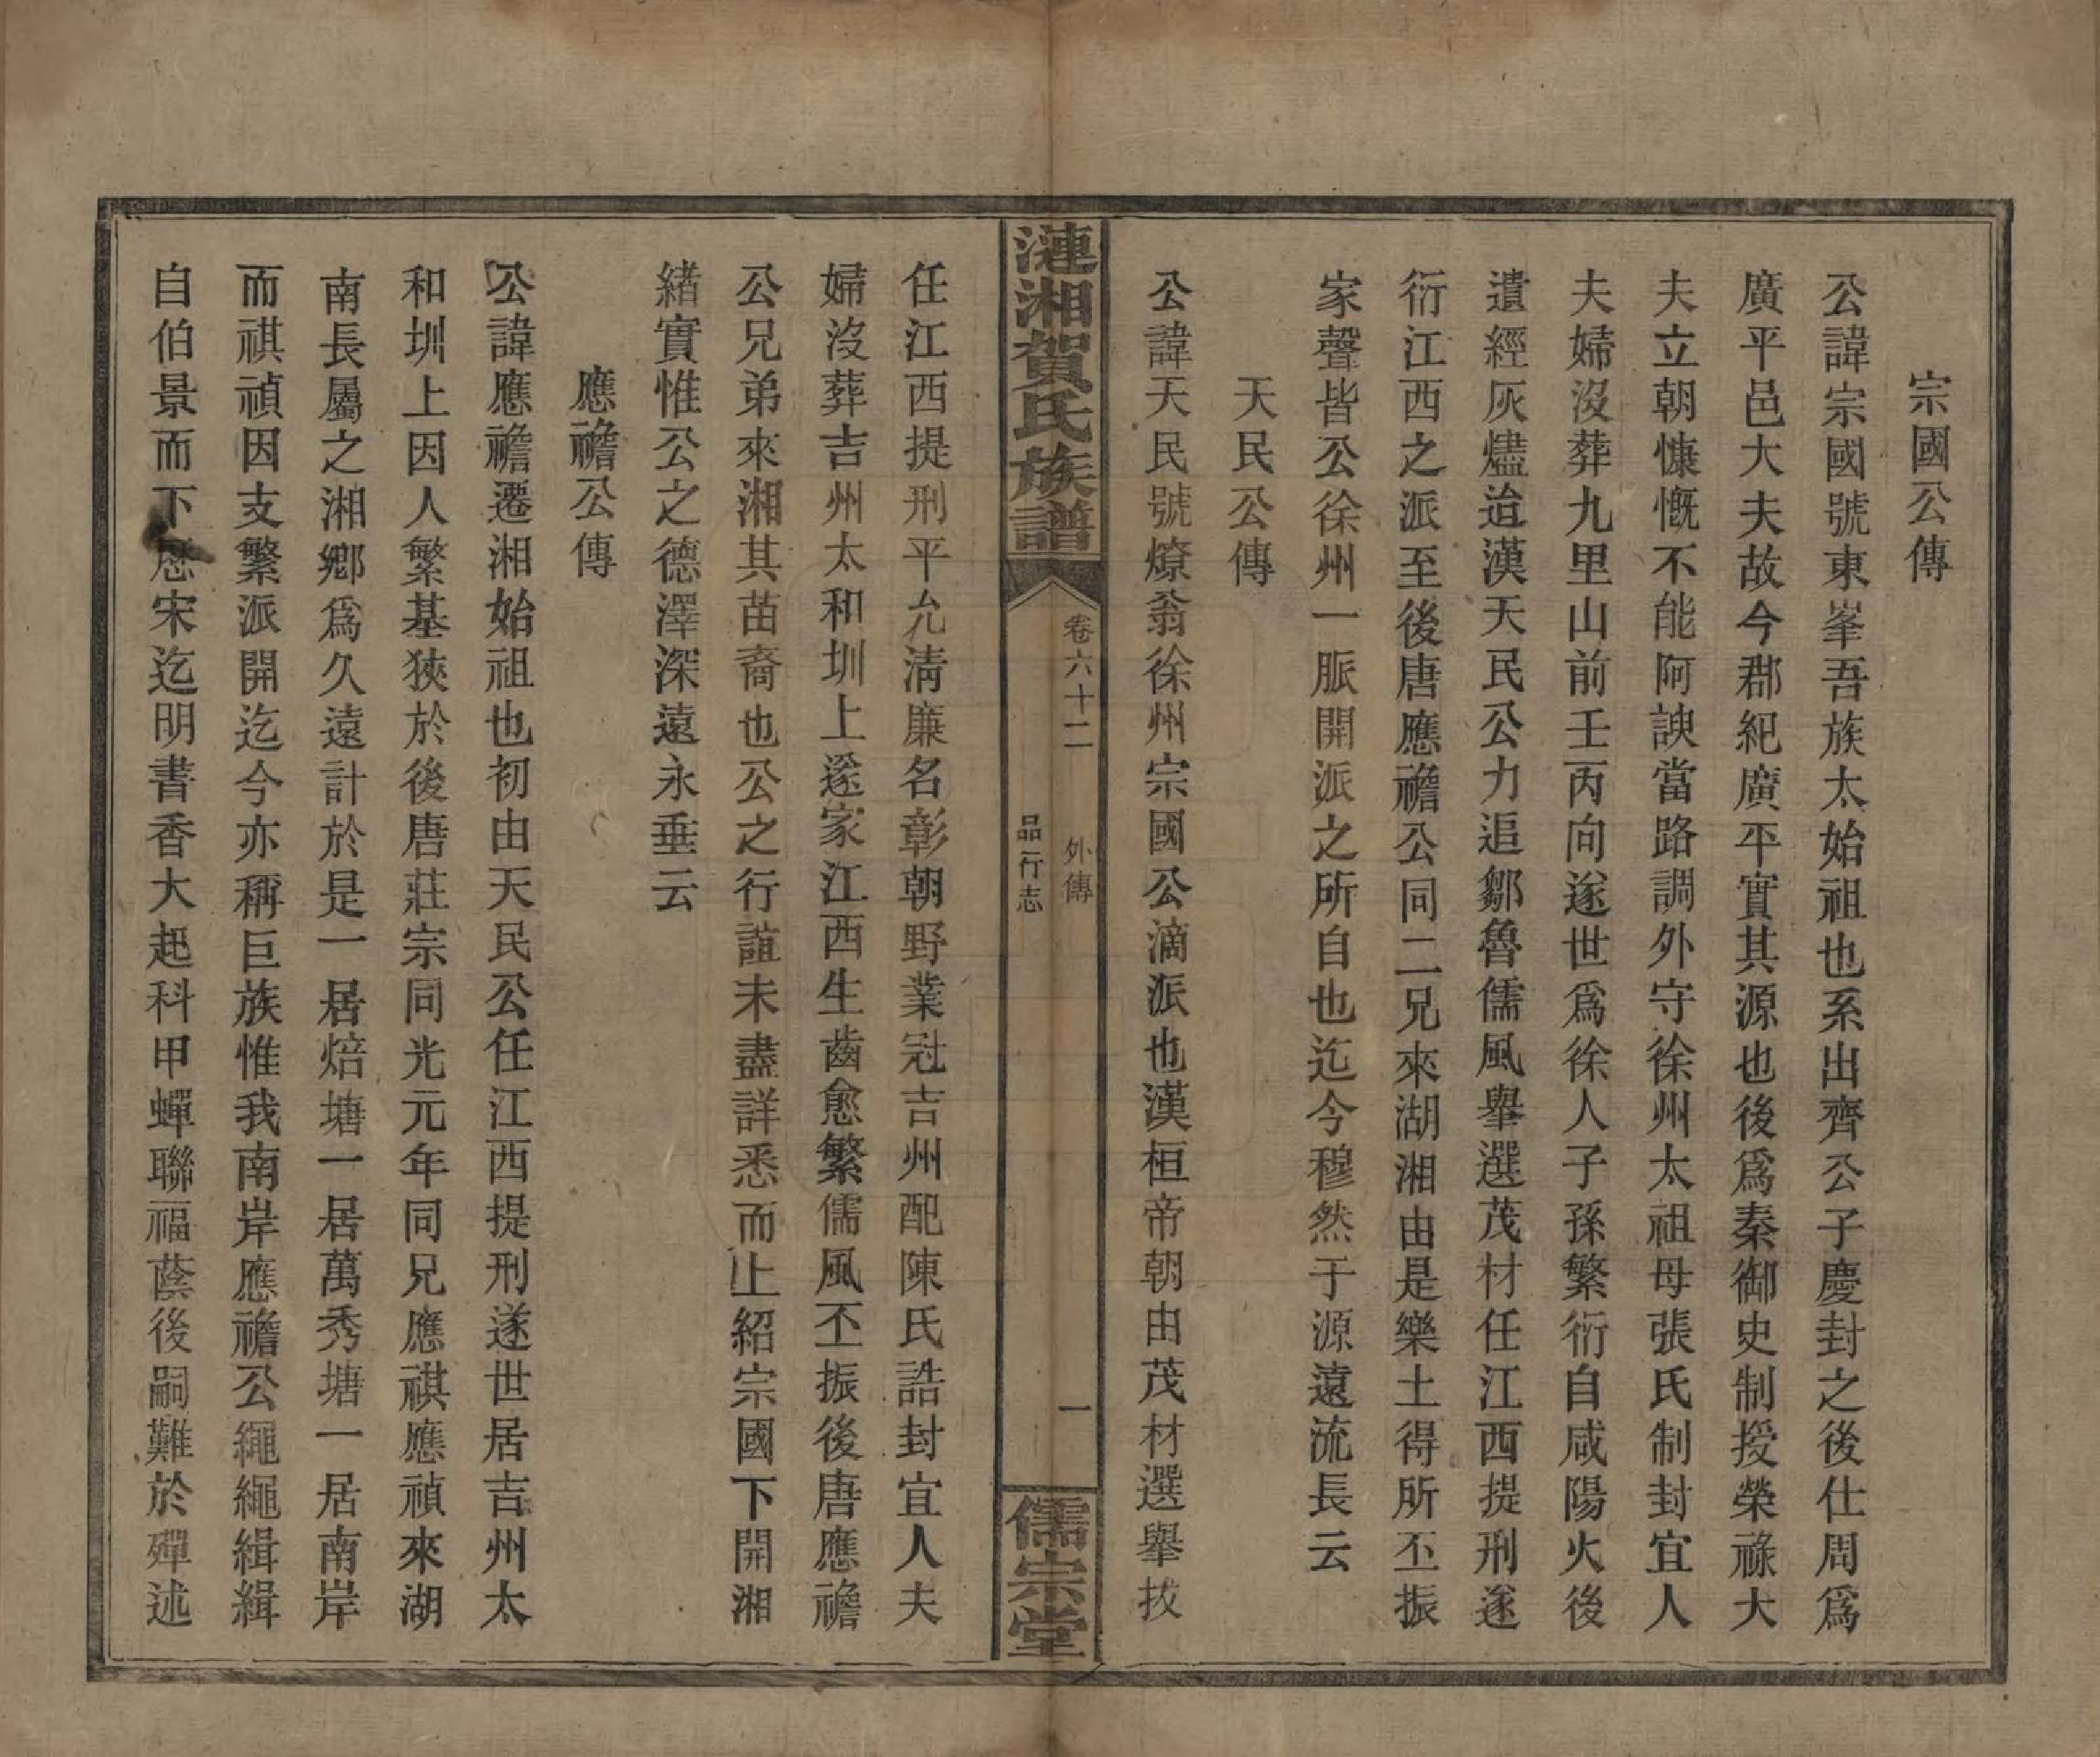 宗國公傳
公諱宗國號東峯吾族太始祖也系出齊公子慶封之後仕周爲
廣平邑大夫故今郡紀廣平實其源也後爲秦御史制授榮祿大
夫立朝慷慨不能阿諛當路調外守徐州太祖母張氏制封宜人
夫婦沒葬九里山前壬丙向遂世爲徐人子孫繁衍自咸陽火後
遺經灰燼迨漢天民公力追鄒魯儒風舉選茂材任江西提刑遂
衍江西之派至後唐應襜公同二兄來湖湘由是樂土得所丕振
家聲皆公徐州一脈開派之所自也迄今穆然于源遠流長云
天民公傳
公諱天民號燎翁徐州宗國公滴派也漢桓帝朝由茂材選舉拔
漣湘賀氏族譜
卷六十二 外傳
品行志
一
儒宗堂
任江西提刑平允淸廉名彰朝野業冠吉州配陳氏誥封宜人夫
婦沒葬吉州太和圳上遂家江西生齒愈繁儒風丕振後唐應襜
公兄弟來湘其苗裔也公之行誼未盡詳悉而上紹宗國下開湘
緖實惟公之德澤深遠永垂云
應襜公傳
公諱應襜遷湘始祖也初由天民公任江西提刑遂世居吉州太
和圳上因人繁基狹於後唐莊宗同光元年同兄應祺應禎來湖
南長屬之湘鄉爲久遠計於是一居焙塘一居萬秀塘一居南岸
而祺禎因支繁派開迄今亦稱巨族惟我南岸應襜公繩繩緝緝
自伯景而下歷宋迄明書香大起科甲蟬聯福蔭後嗣難於殫述